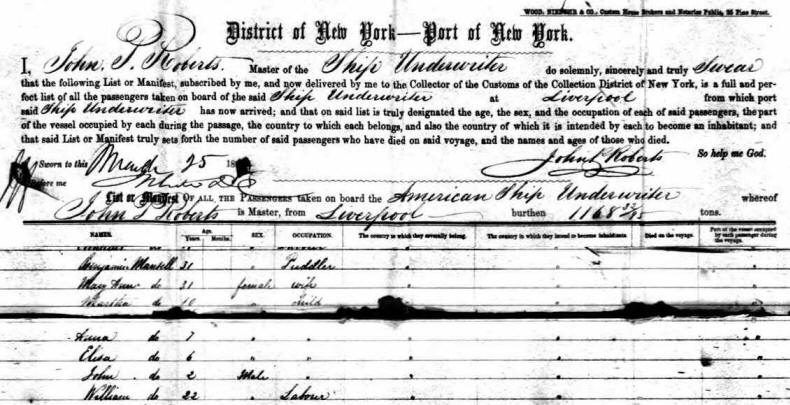 WOOD, NIEBUHR & CO., Custom House Brokers and Notaries Public, 35 Pine Street.
District of New York—Port of New York.
I, John P. Roberts. Master of the Ship Underwriter do solemnly, sincerely and truly Swear
that the following List or Manifest, subscribed by me, and now delivered by me to the Collector of the Customs of the Collection District of New York, is a full and per-
fect list of all the passengers taken on board of the said Ship Underwriter at Liverpool from which port
said Ship Underwriter has now arrived; and that on said list is truly designated the age, the sex, and the occupation of each of said passengers, the part
of the vessel occupied by each during the passage, the country to which each belongs, and also the country of which it is intended by each to become an inhabitant; and
that said List or Manifest truly sets forth the number of said passengers who have died on said voyage, and the names and ages of those who died.
Sworn to this March 25 18 John P Roberts So help me God.
Before me
List or Manifest OF ALL THE PASSENGERS taken on board the American Ship Underwriter whereof
John P Roberts is Master, from Liverpool burthen 1168 tons.
NAMES. Age. Years Months. SEX. OCCUPATION. The country to which they severally belong. The country in which they intend to become inhabitants. Died on the voyage. Part of the vessel occupied by each passenger during the voyage.
Benjamin Mansell 31 " Puddler " " "
Mary Ann do 31 female wife " " "
Martha do 10 " Child " "
Hana do 7 " " " "
Elisa do 6 " " " " "
John do 2 Male " " "
William do 22 " Labour " " "